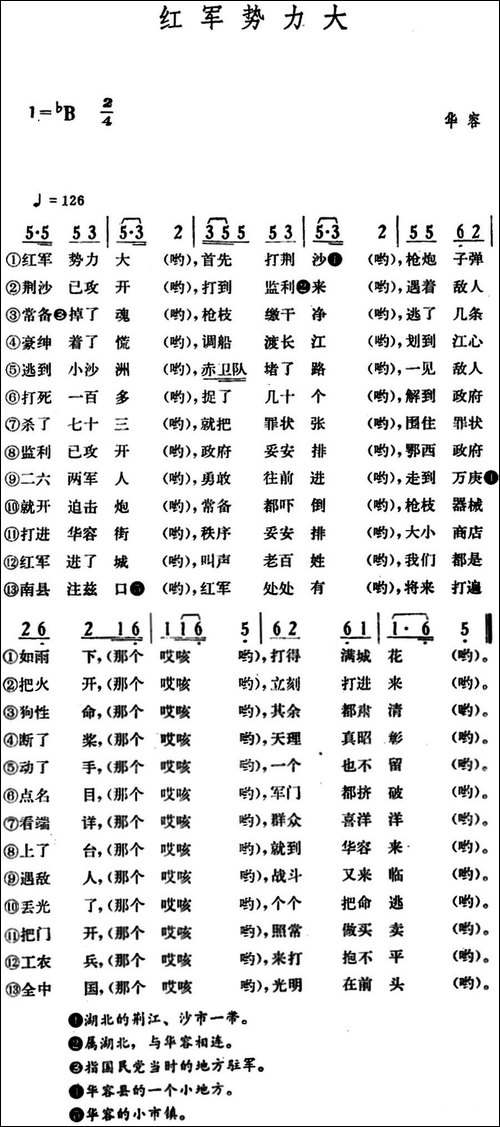 红军势力大
1=♭B 2/4
华容
♩=126
5·5 5 3 | 5·3 2 | 3 5 5 5 3 | 5·3 2 | 5 5 6 2 |
①红军 势力 大 (哟), 首先 打荆 沙❶ (哟), 枪炮 子弹
②荆沙 已攻 开 (哟), 打到 监利❷来 (哟), 遇着 敌人
③常备❸掉了 魂 (哟), 枪枝 缴干 净 (哟), 逃了 几条
④豪绅 着了 慌 (哟), 调船 渡长 江 (哟), 划到 江心
⑤逃到 小沙 洲 (哟), 赤卫队 堵了 路 (哟), 一见 敌人
⑥打死 一百 多 (哟), 捉了 几十 个 (哟), 解到 政府
⑦杀了 七十 三 (哟), 就把 罪状 张 (哟), 围住 罪状
⑧监利 已攻 开 (哟), 政府 妥安 排 (哟), 鄂西 政府
⑨二六 两军 人 (哟), 勇敢 往前 进 (哟), 走到 万庾
⑩就开 迫击 炮 (哟), 常备 都吓 倒 (哟), 枪枝 器械
⑪打进 华容 街 (哟), 秩序 妥安 排 (哟), 大小 商店
⑫红军 进了 城 (哟), 叫声 老百 姓 (哟), 我们 都是
⑬南县 注兹 口 (哟), 红军 处处 有 (哟), 将来 打遍
2 6 2 1 6 | 1 1 6 5 | 6 2 6 1 | 1·6 5 ‖
①如雨 下, (那个 哎咳 哟), 打得 满城 花 (哟)。
②把火 开, (那个 哎咳 哟), 立刻 打进 来 (哟)。
③狗性 命, (那个 哎咳 哟), 其余 都肃 清 (哟)。
④断了 桨, (那个 哎咳 哟), 天理 真昭 彰 (哟)。
⑤动了 手, (那个 哎咳 哟), 一个 也不 留 (哟)。
⑥点名 目, (那个 哎咳 哟), 军门 都挤 破 (哟)。
⑦看端 详, (那个 哎咳 哟), 群众 喜洋 洋 (哟)。
⑧上了 台, (那个 哎咳 哟), 就到 华容 来 (哟)。
⑨遇敌 人, (那个 哎咳 哟), 战斗 又来 临 (哟)。
⑩丢光 了, (那个 哎咳 哟), 个个 把命 逃 (哟)。
⑪把门 开, (那个 哎咳 哟), 照常 做买 卖 (哟)。
⑫工农 兵, (那个 哎咳 哟), 来打 抱不 平 (哟)。
⑬全中 国, (那个 哎咳 哟), 光明 在前 头 (哟)。
❶湖北的荆江、沙市一带。
❷属湖北，与华容相连。
❸指国民党当时的地方驻军。
华容县的一个小地方。
华容的小市镇。